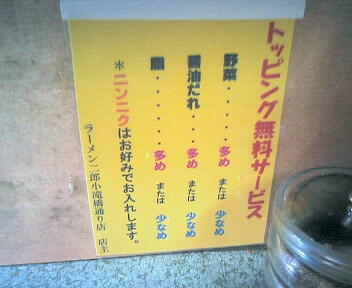 トッピング無料サービス
野菜・・・・・多め または 少なめ
醤油だれ・・・多め または 少なめ
脂・・・・・・多め または 少なめ
＊ニンニクはお好みでお入れします。
ラーメン二郎小滝橋通り店 店主